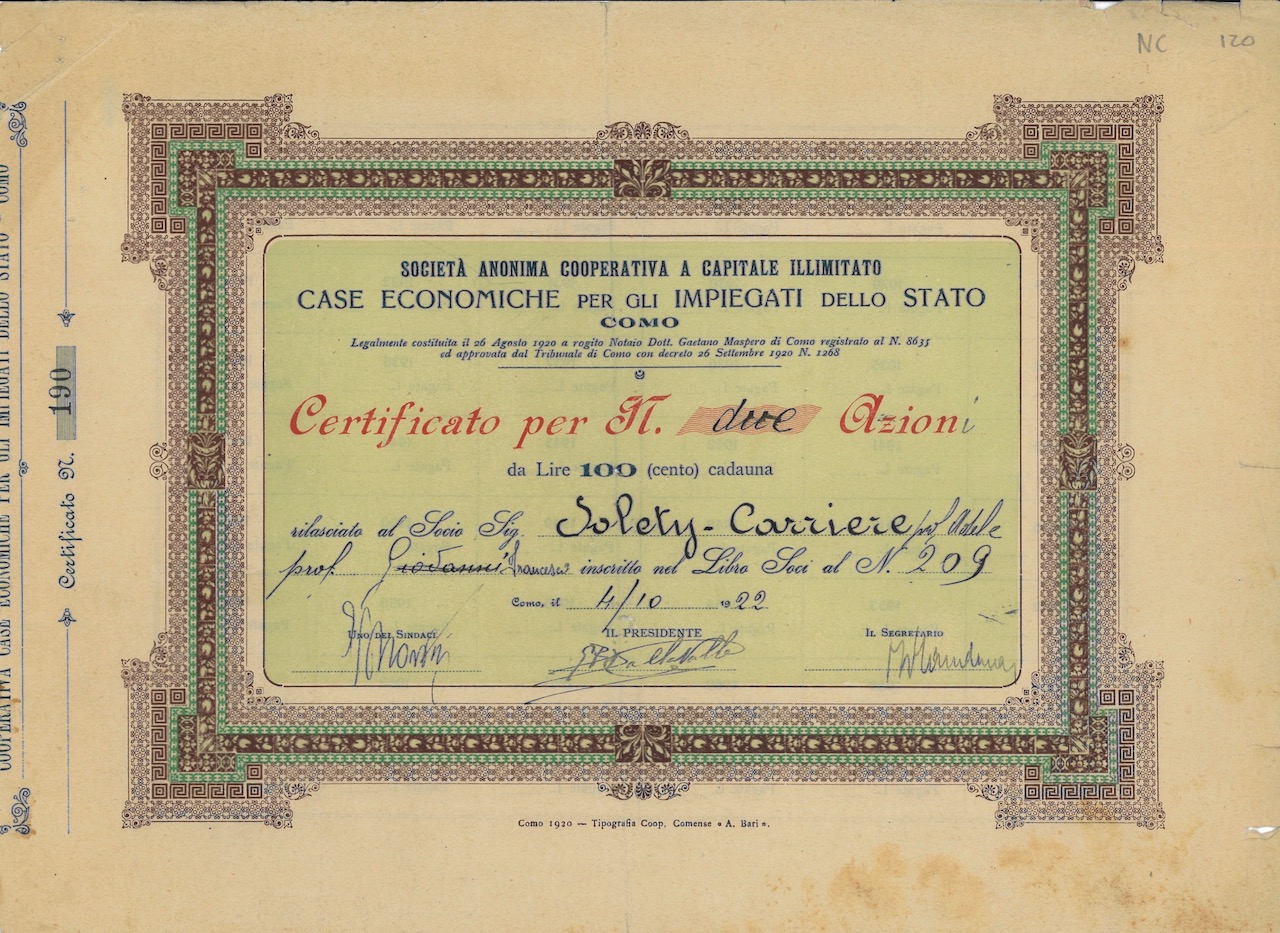 NC 120
COOPERATIVA CASE ECONOMICHE PER GLI IMPIEGATI DELLO STATO - COMO
Certificato N. 190
SOCIETÀ ANONIMA COOPERATIVA A CAPITALE ILLIMITATO
CASE ECONOMICHE PER GLI IMPIEGATI DELLO STATO
COMO
Legalmente costituita il 26 Agosto 1920 a rogito Notaio Dott. Gaetano Maspero di Como registrato al N. 8635
ed approvata dal Tribunale di Como con decreto 26 Settembre 1920 N. 1268
Certificato per N. due Azioni
da Lire 100 (cento) cadauna
rilasciato al Socio Sig. Solety-Carriere prof
prof. Giovanni Francesco inscritto nel Libro Soci al N. 209
Como, il 4/10 1922
UNO DEI SINDACI IL PRESIDENTE IL SEGRETARIO
Como 1920 — Tipografia Coop. Comense « A. Bari ».